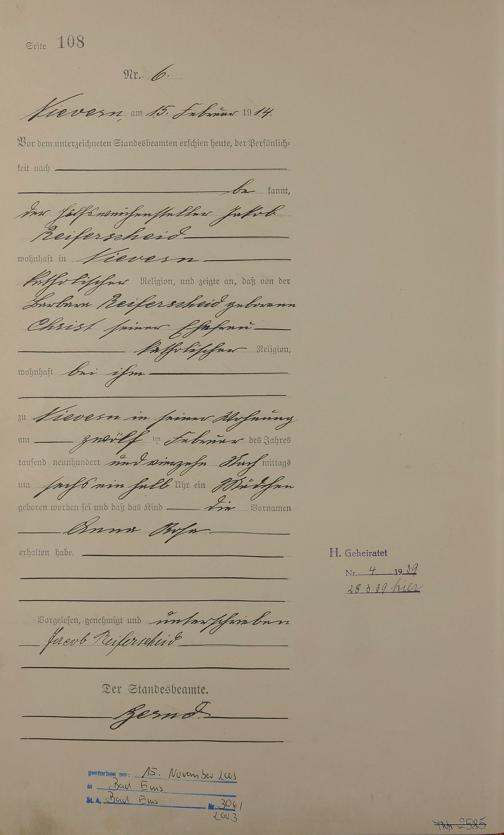 Seite 108
Nr. 6.
Nievern, am 15. Februar 1914.
Vor dem unterzeichneten Standesbeamten erschien heute, der Persönlich-
keit nach
be kannt,
der Hilfsweichensteller Jakob
Reiferscheid
wohnhaft in Nievern
katholischer Religion, und zeigte an, daß von der
Barbara Reiferscheid geborenen
Christ seiner Ehefrau
katholischer Religion,
wohnhaft bei ihm
zu Nievern in seiner Wohnung
am zwölf ten Februar des Jahres
tausend neunhundert und vierzehn Nach mittags
um sechs ein halb Uhr ein Mädchen
geboren worden sei und daß das Kind die Vornamen
Anna Rosa
erhalten habe.
Vorgelesen, genehmigt und unterschrieben
Jacob Reiferscheid
Der Standesbeamte.
H. Geheiratet
Nr. 4 1939
28.3.39 hier
gestorben am: 15. November 2003
in Bad Ems
St. A. Bad Ems Nr. 306/
2003